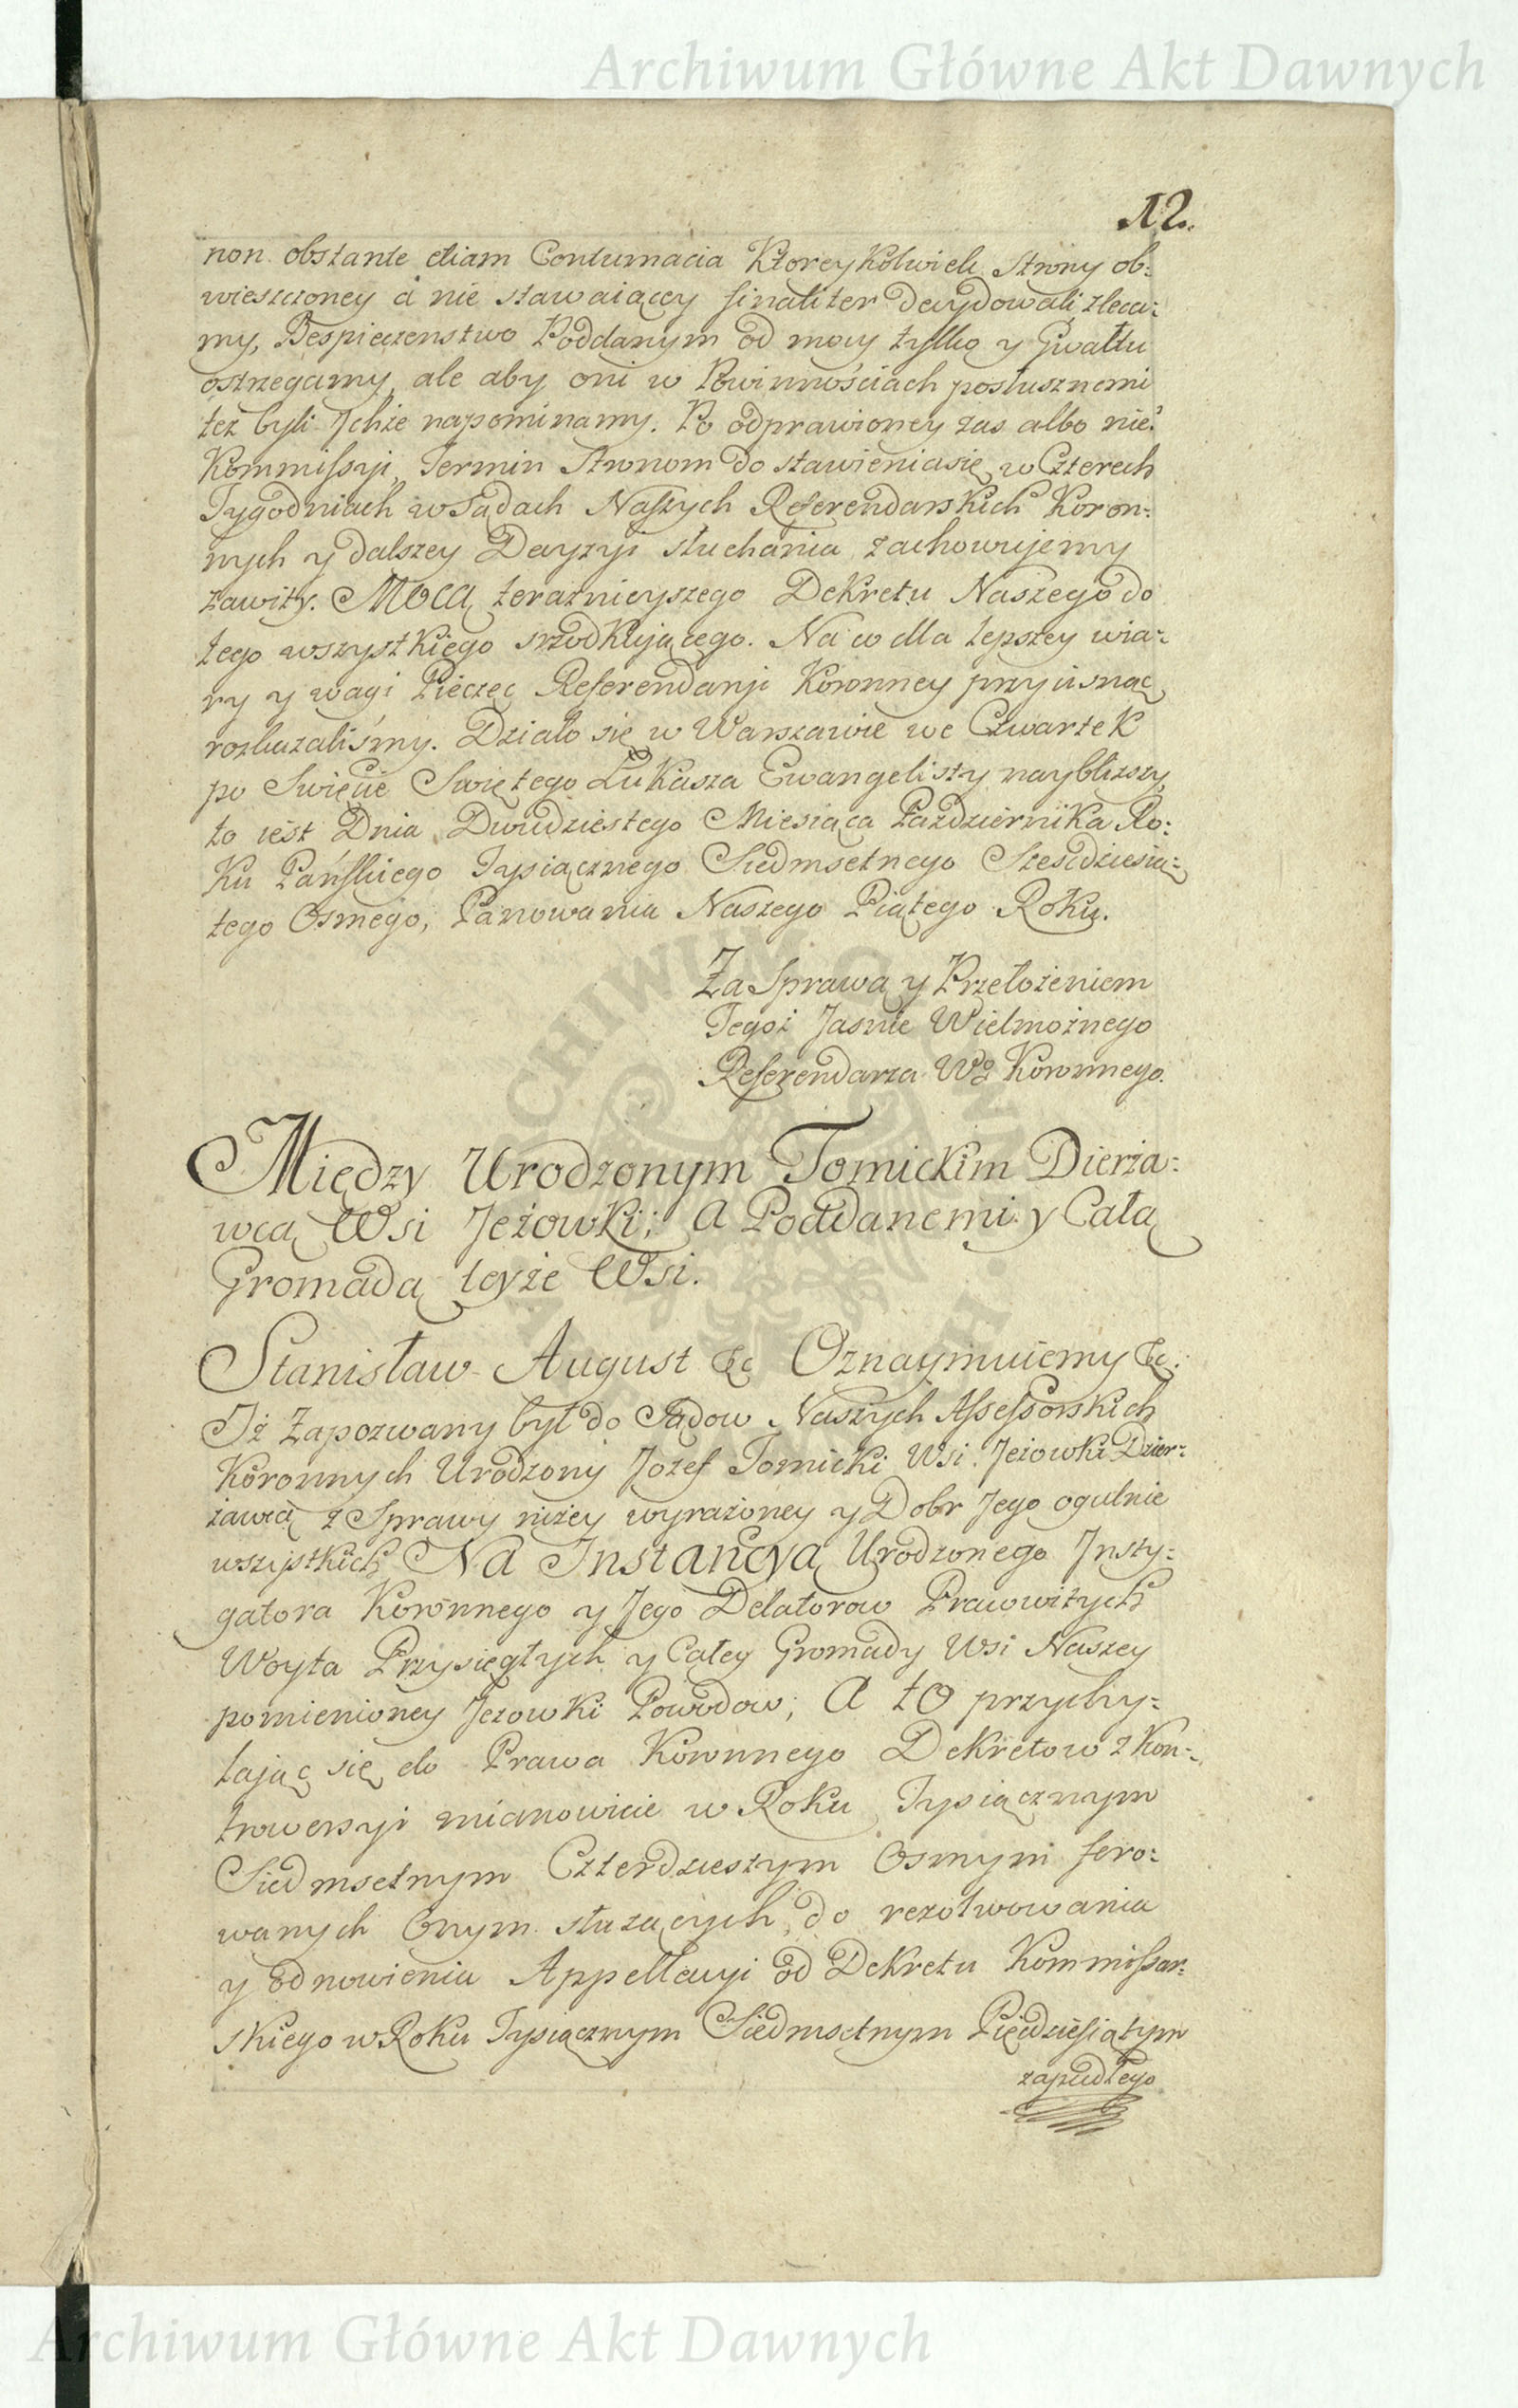 Archiwum Główne Akt Dawnych
12.
non obstante etiam Contumacia Ktoreykolwiek Strony ob:
wieszczoney á nie stawaiącey finaliter decydowali, zleca:
my, Bespieczenstwo Poddanym od mocy tylko y Gwałtu
ostrzegamy, ale aby oni w Powinnościach posłusznemi
też byli Jchże napominamy. Po odprawioney zas albo nie
Kommissyi, Termin Stronom do stawieniasię w Czterech
Tygodniach w Sądach Naszych Referendarskich Koron:
nych y dalszey Decyzyi słuchania zachowujemy
zawity. Mocą teraznieyszego Dekretu Naszego do
tego wszystkiego srzodkującego. Na co dla lepszey wia:
ry y wagi Pieczęc Referendaryi Koronney przycisnąc
rozkazaliśmy. Działo się w Warszawie we Czwartek
po Swięcie Swiętego Łukasza Ewangelisty naybliższy,
to iest Dnia Dwudziestego Miesiąca Pazdziernika Ro:
ku Pańskiego Tysiącznego Siedmsetnego Szescdziesią:
tego Osmego, Panowania Naszego Piątego Roku.
Za Sprawą y Przełożeniem
Tegoż Jasnie Wielmożnego
Referendarza Wo Koronnego.
Między Urodzonym Tomickim Dierża:
wcą Wsi Jeżowki; A Poddanemi y Całą
Gromadą teyże Wsi.
Stanisław August &c Oznaymuiemy &c.
Iż Zapozwany był do Sądow Naszych Assessorskich
Koronnych Urodzony Jozef Tomicki Wsi Jeżowki Dzier:
żawca z Sprawy niżey wyrażoney y Dobr Jego ogulnie
wszystkich Na Instancyą Urodzonego Insty:
gatora Koronnego y Jego Delatorow Prawowitych
Woyta Przysięgłych y Całey Gromady Wsi Naszey
pomienioney Jezowki Powodow; A to przychy:
lając się do Prawa Koronnego Dekretow z Kon:
trowersyi mianowicie w Roku Tysiącznym
Siedmsetnym Czterdziestym Osmym fero:
wanych Onym służących, do rezolwowania
y odnowienia Appellacyi od Dekretu Kommissar:
skiego w Roku Tysiącznym Siedmsetnym Pięcdziesiątym
zapadłego
Archiwum Główne Akt Dawnych